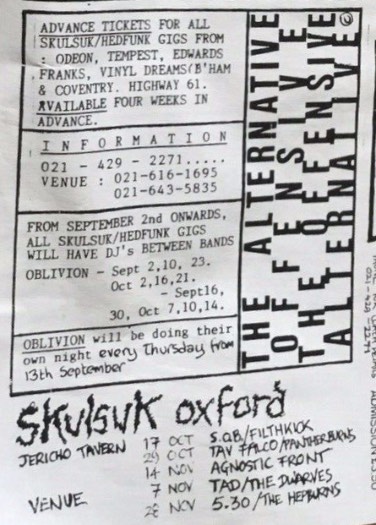 ADVANCE TICKETS FOR ALL
SKULSUK/HEDFUNK GIGS FROM
: ODEON, TEMPEST, EDWARDS
FRANKS, VINYL DREAMS(B'HAM
& COVENTRY. HIGHWAY 61.
AVAILABLE FOUR WEEKS IN
ADVANCE.
INFORMATION
021 - 429 - 2271.....
VENUE : 021-616-1695
021-643-5835
FROM SEPTEMBER 2nd ONWARDS,
ALL SKULSUK/HEDFUNK GIGS
WILL HAVE DJ's BETWEEN BANDS
OBLIVION - Sept 2,10, 23.
Oct 2,16,21.
- Sept16,
30, Oct 7,10,14.
OBLIVION will be doing their
own night every Thursday from
13th September
THE ALTERNATIVE
OFFENSIVE
THE OFFENSIVE
ALTERNATIVE
©
021-429-2271
ADMISSION £3.50
Skulsuk oxford
JERICHO TAVERN 17 OCT S.O.B/FILTHKICK
29 OCT TAV FALCO/PANTHERBURNS
14 NOV AGNOSTIC FRONT
7 NOV TAD/THE DWARVES
VENUE 28 NOV 5.30/THE HEPBURNS